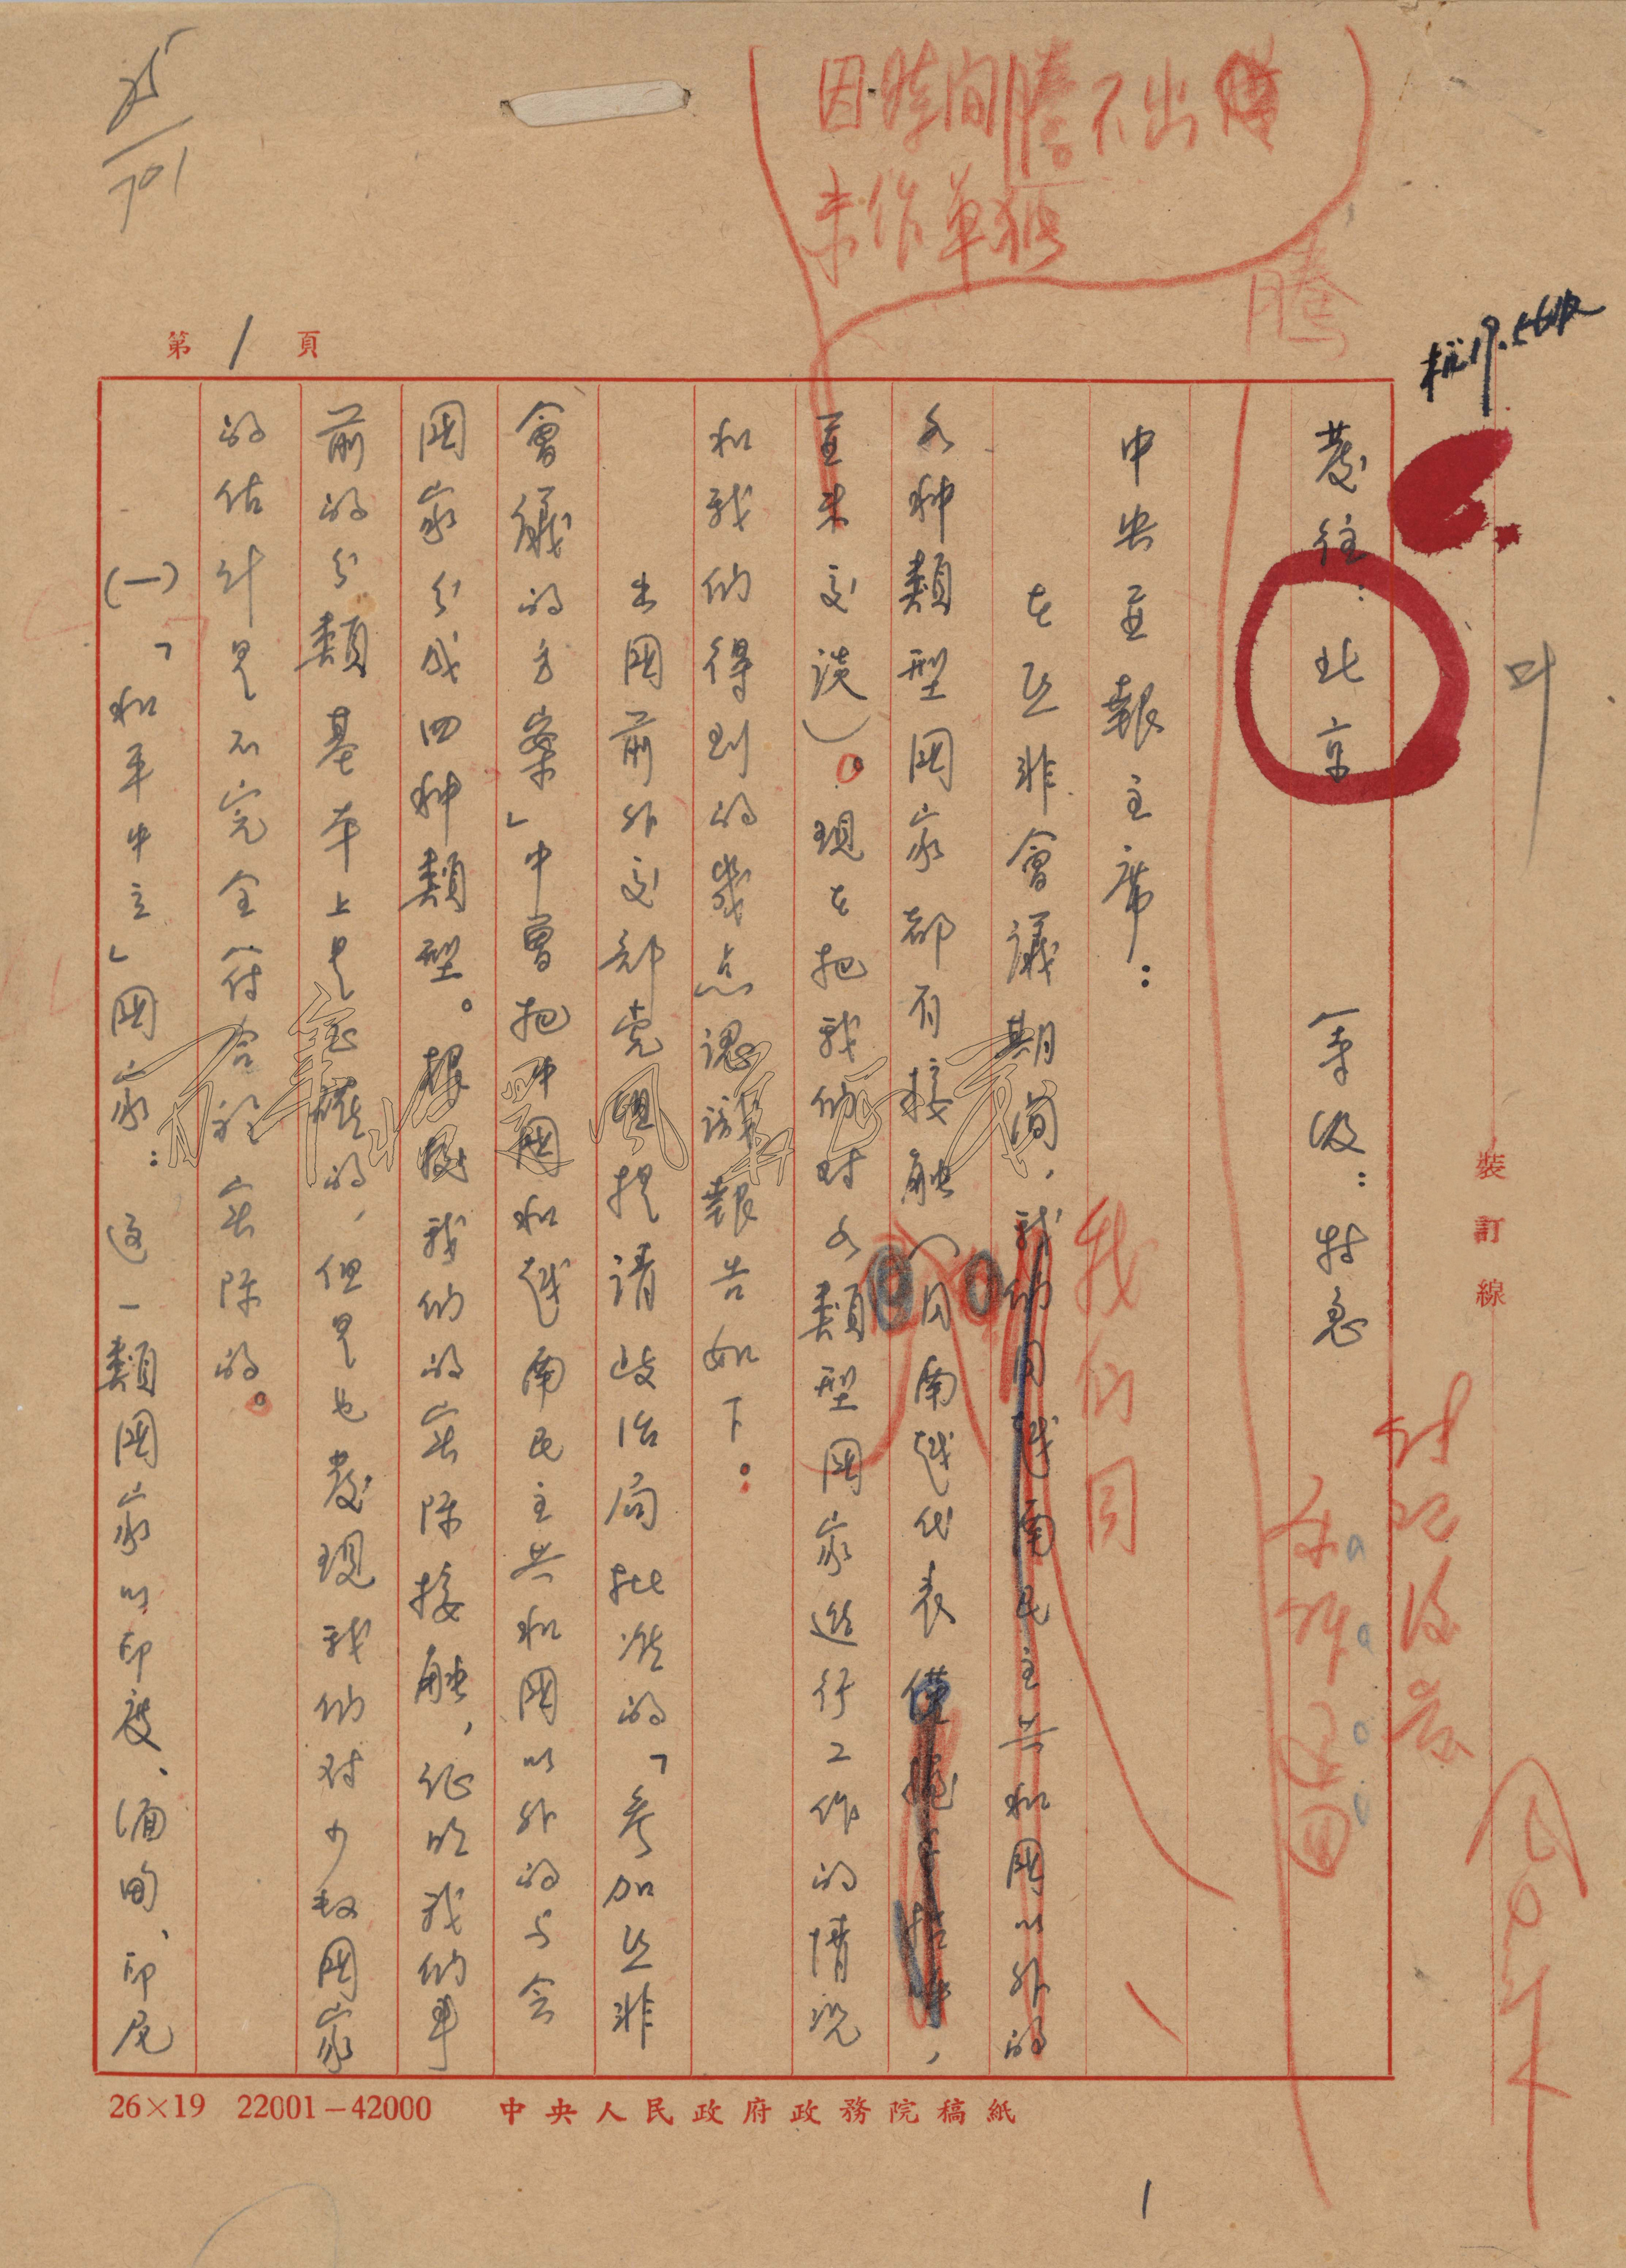 因時間騰不出
未作單獨
騰
第1頁
發往：北京　等級：特急
中央並報主席：
在亞非會議期間，我們同越南民主共和國以外的
我們同
各种類型國家都有接触（因南越代表
並未交談）。現在把我們对各類型國家進行工作的情況
和我们得到的幾点認識報告如下：
出國前外交部党組提請政治局批准的「參加亞非
會議的方案」中曾把中國和越南民主共和國以外的与会
國家分成四种類型。根據我们的实际接触，证明我们事
前的分類基本上是正確的，但是也發現我们对少数國家
的估计是不完全符合於实际的。
(一)「和平中立」國家：这一類國家以印度、缅甸、印尼
裝訂線
26×19　22001－42000　中央人民政府政務院稿紙
1